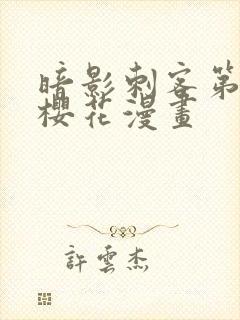 暗影刺客第
櫻花漫畫
許雲杰